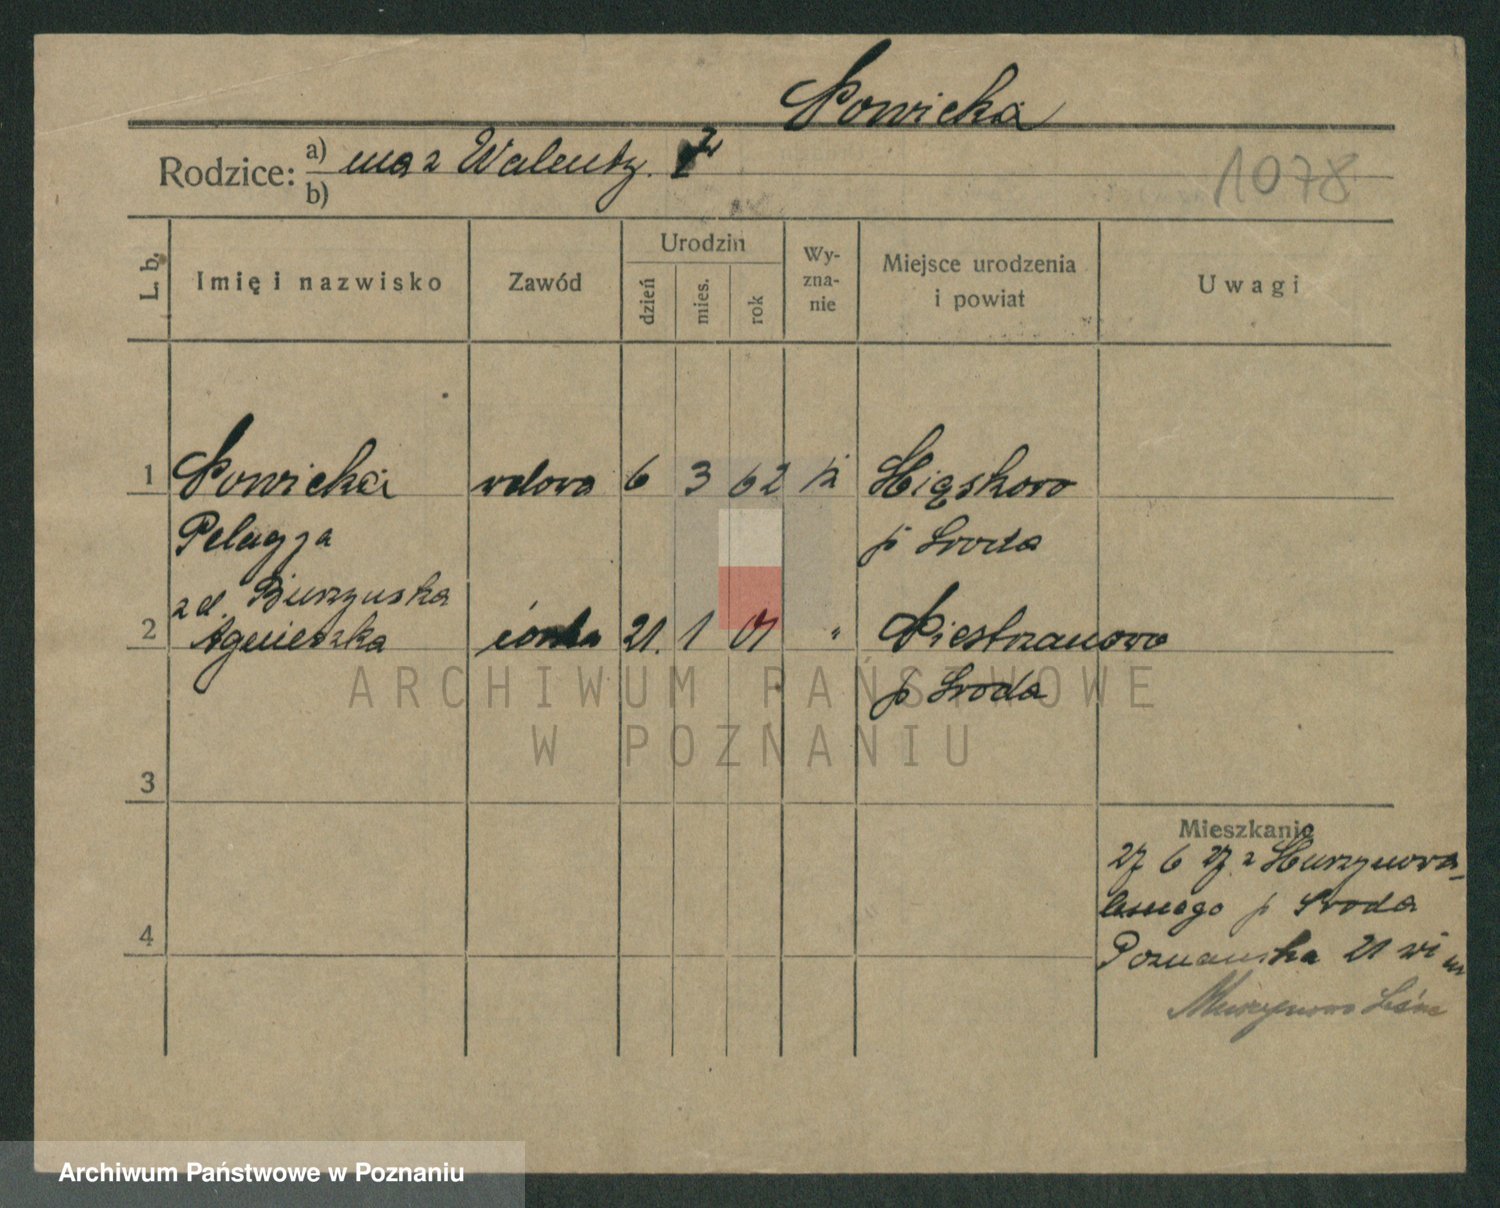 Nowicka
Rodzice: a) mąż Walenty.
b)
1078
L. b.
Imię i nazwisko
Zawód
Urodzin
dzień
mies.
rok
Wy-
zna-
nie
Miejsce urodzenia
i powiat
Uwagi
1 Nowicka wdowa 6 3 62 k Miąskowo
Pelagja p Środa
zd. Burzyńska
2 Agnieszka córka 21. 1 01 " Pietrzanowo
p Środa
ARCHIWUM PAŃSTWOWE
W POZNANIU
3
Mieszkanie
27 6 27 z Murzynowa
lesnego p Środa
4
Poznańska 21
Murzynowo Leśne
Archiwum Państwowe w Poznaniu